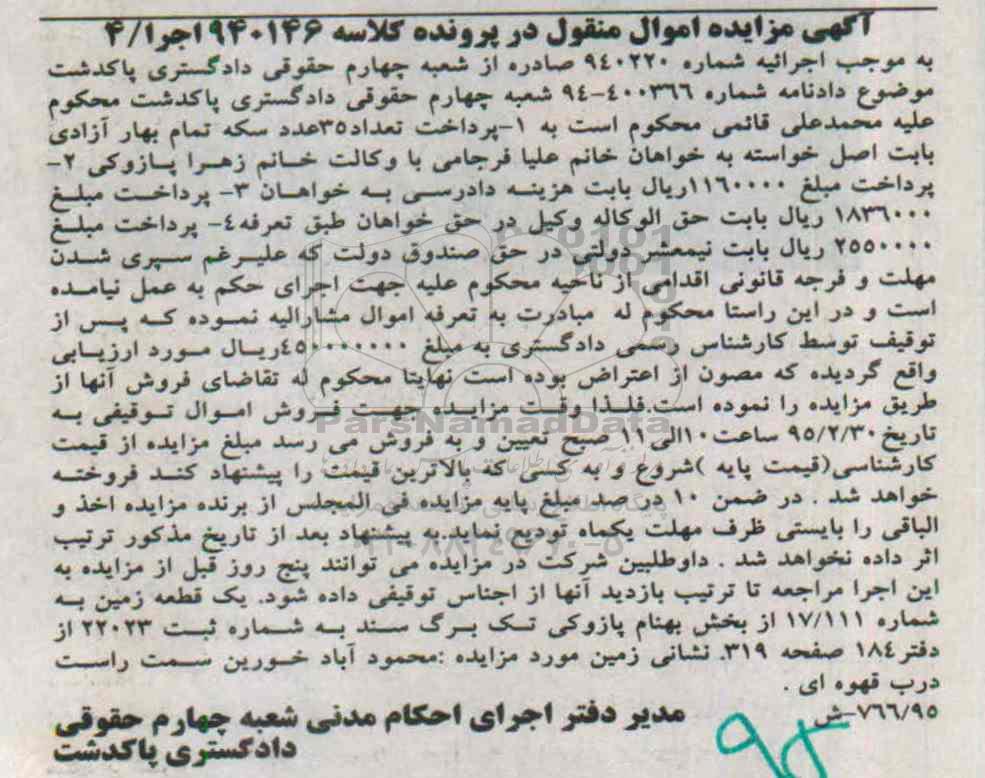 آگهی مزایده اموال منقول در پرونده کلاسه ۹۴۰۱۴۶ اجرا/۴
به موجب اجرائیه شماره ۹٤۰۲۲۰ صادره از شعبه چهارم حقوقی دادگستری پاکدشت
موضوع دادنامه شماره ٤۰۰۳٦٦-۹٤ شعبه چهارم حقوقی دادگستری پاکدشت محکوم
علیه محمدعلی قائمی محکوم است به ۱-پرداخت تعداد۳۵عدد سکه تمام بهار آزادی
بابت اصل خواسته به خواهان خانم علیا فرجامی با وکالت خانم زهرا پازوکی ۲-
پرداخت مبلغ ۱۱٦۰۰۰۰ریال بابت هزینه دادرسی به خواهان ۳- پرداخت مبلغ
۱۸۳٦۰۰۰ ریال بابت حق الوکاله وکیل در حق خواهان طبق تعرفه٤- پرداخت مبلغ
۲۵۵۰۰۰۰ ریال بابت نیمعشر دولتی در حق صندوق دولت که علیرغم سپری شدن
مهلت و فرجه قانونی اقدامی از ناحیه محکوم علیه جهت اجرای حکم به عمل نیامده
است و در این راستا محکوم له مبادرت به تعرفه اموال مشارالیه نموده که پس از
توقیف توسط کارشناس رسمی دادگستری به مبلغ ٤۵۰۰۰۰۰۰۰ریال مورد ارزیابی
واقع گردیده که مصون از اعتراض بوده است نهایتا محکوم له تقاضای فروش آنها از
طریق مزایده را نموده است.فلذا وقت مزایده جهت فروش اموال توقیفی به
تاریخ ۹۵/۲/۳۰ ساعت۱۰الی۱۱ صبح تعیین و به فروش می رسد مبلغ مزایده از قیمت
کارشناسی(قیمت پایه )شروع و به کسی که بالاترین قیمت را پیشنهاد کند فروخته
خواهد شد . در ضمن ۱۰ در صد مبلغ پایه مزایده فی المجلس از برنده مزایده اخذ و
الباقی را بایستی ظرف مهلت یکماه تودیع نماید.به پیشنهاد بعد از تاریخ مذکور ترتیب
اثر داده نخواهد شد . داوطلبین شرکت در مزایده می توانند پنج روز قبل از مزایده به
این اجرا مراجعه تا ترتیب بازدید آنها از اجناس توقیفی داده شود. یک قطعه زمین به
شماره ۱۷/۱۱۱ از بخش بهنام پازوکی تک برگ سند به شماره ثبت ۲۲۰۲۳ از
دفتر۱۸٤ صفحه ۳۱۹. نشانی زمین مورد مزایده :محمود آباد خورین سمت راست
درب قهوه ای .
۷٦٦/۹۵-ش
مدیر دفتر اجرای احکام مدنی شعبه چهارم حقوقی
دادگستری پاکدشت
ParsNamadData